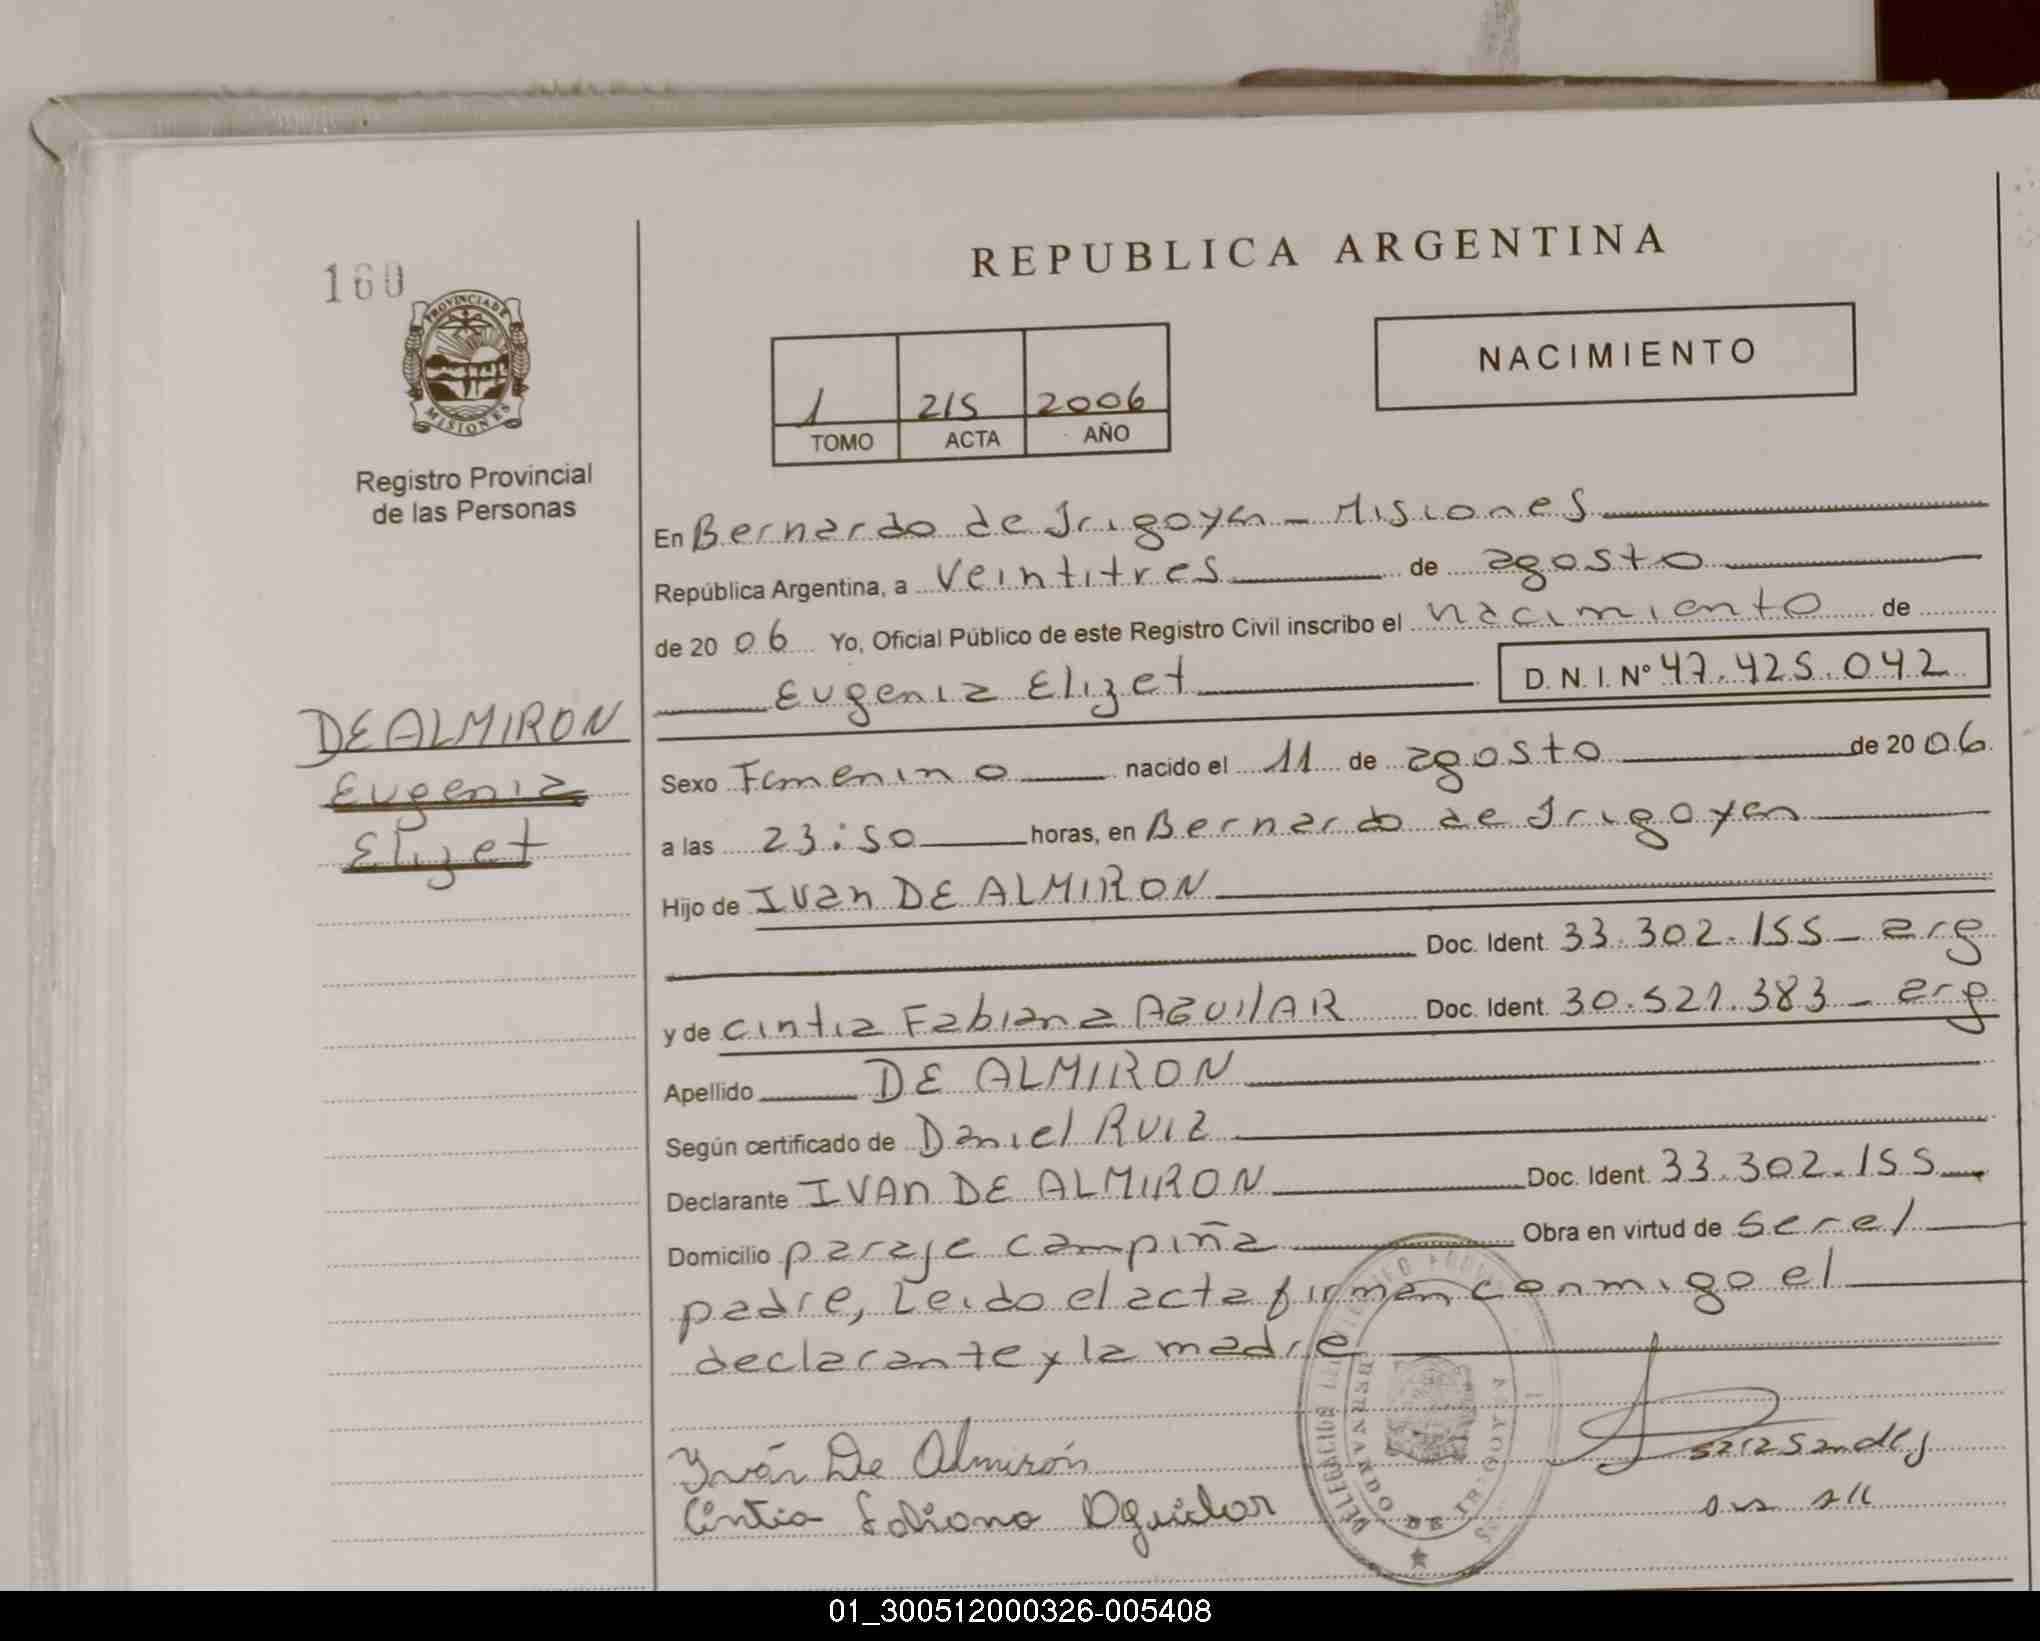 REPUBLICA ARGENTINA
160
PROVINCIA DE
MISIONES
Registro Provincial
de las Personas
NACIMIENTO
1 215 2006
TOMO ACTA AÑO
En Bernardo de Irigoyen - Misiones
República Argentina, a veintitres de agosto
de 20 06 Yo, Oficial Público de este Registro Civil inscribo el nacimiento de
Eugenia Elizet D.N.I. Nº 47.425.042
DE ALMIRON
Eugenia
Elizet
Sexo Femenino nacido el 11 de agosto de 20 06
a las 23:50 horas, en Bernardo de Irigoyen
Hijo de Ivan DE ALMIRON
Doc. Ident. 33.302.155 - arg
y de Cintia Fabiana AGUILAR Doc. Ident. 30.521.383 - arg
Apellido DE ALMIRON
Según certificado de Daniel Ruiz
Declarante IVAN DE ALMIRON Doc. Ident. 33.302.155
Domicilio paraje campiña Obra en virtud de ser el
padre, Leido el acta firman conmigo el
declarante y la madre
Iván De Almirón
Cintia Fabiana Aguilar
BERNARDO DE IRIGOYEN
01_300512000326-005408